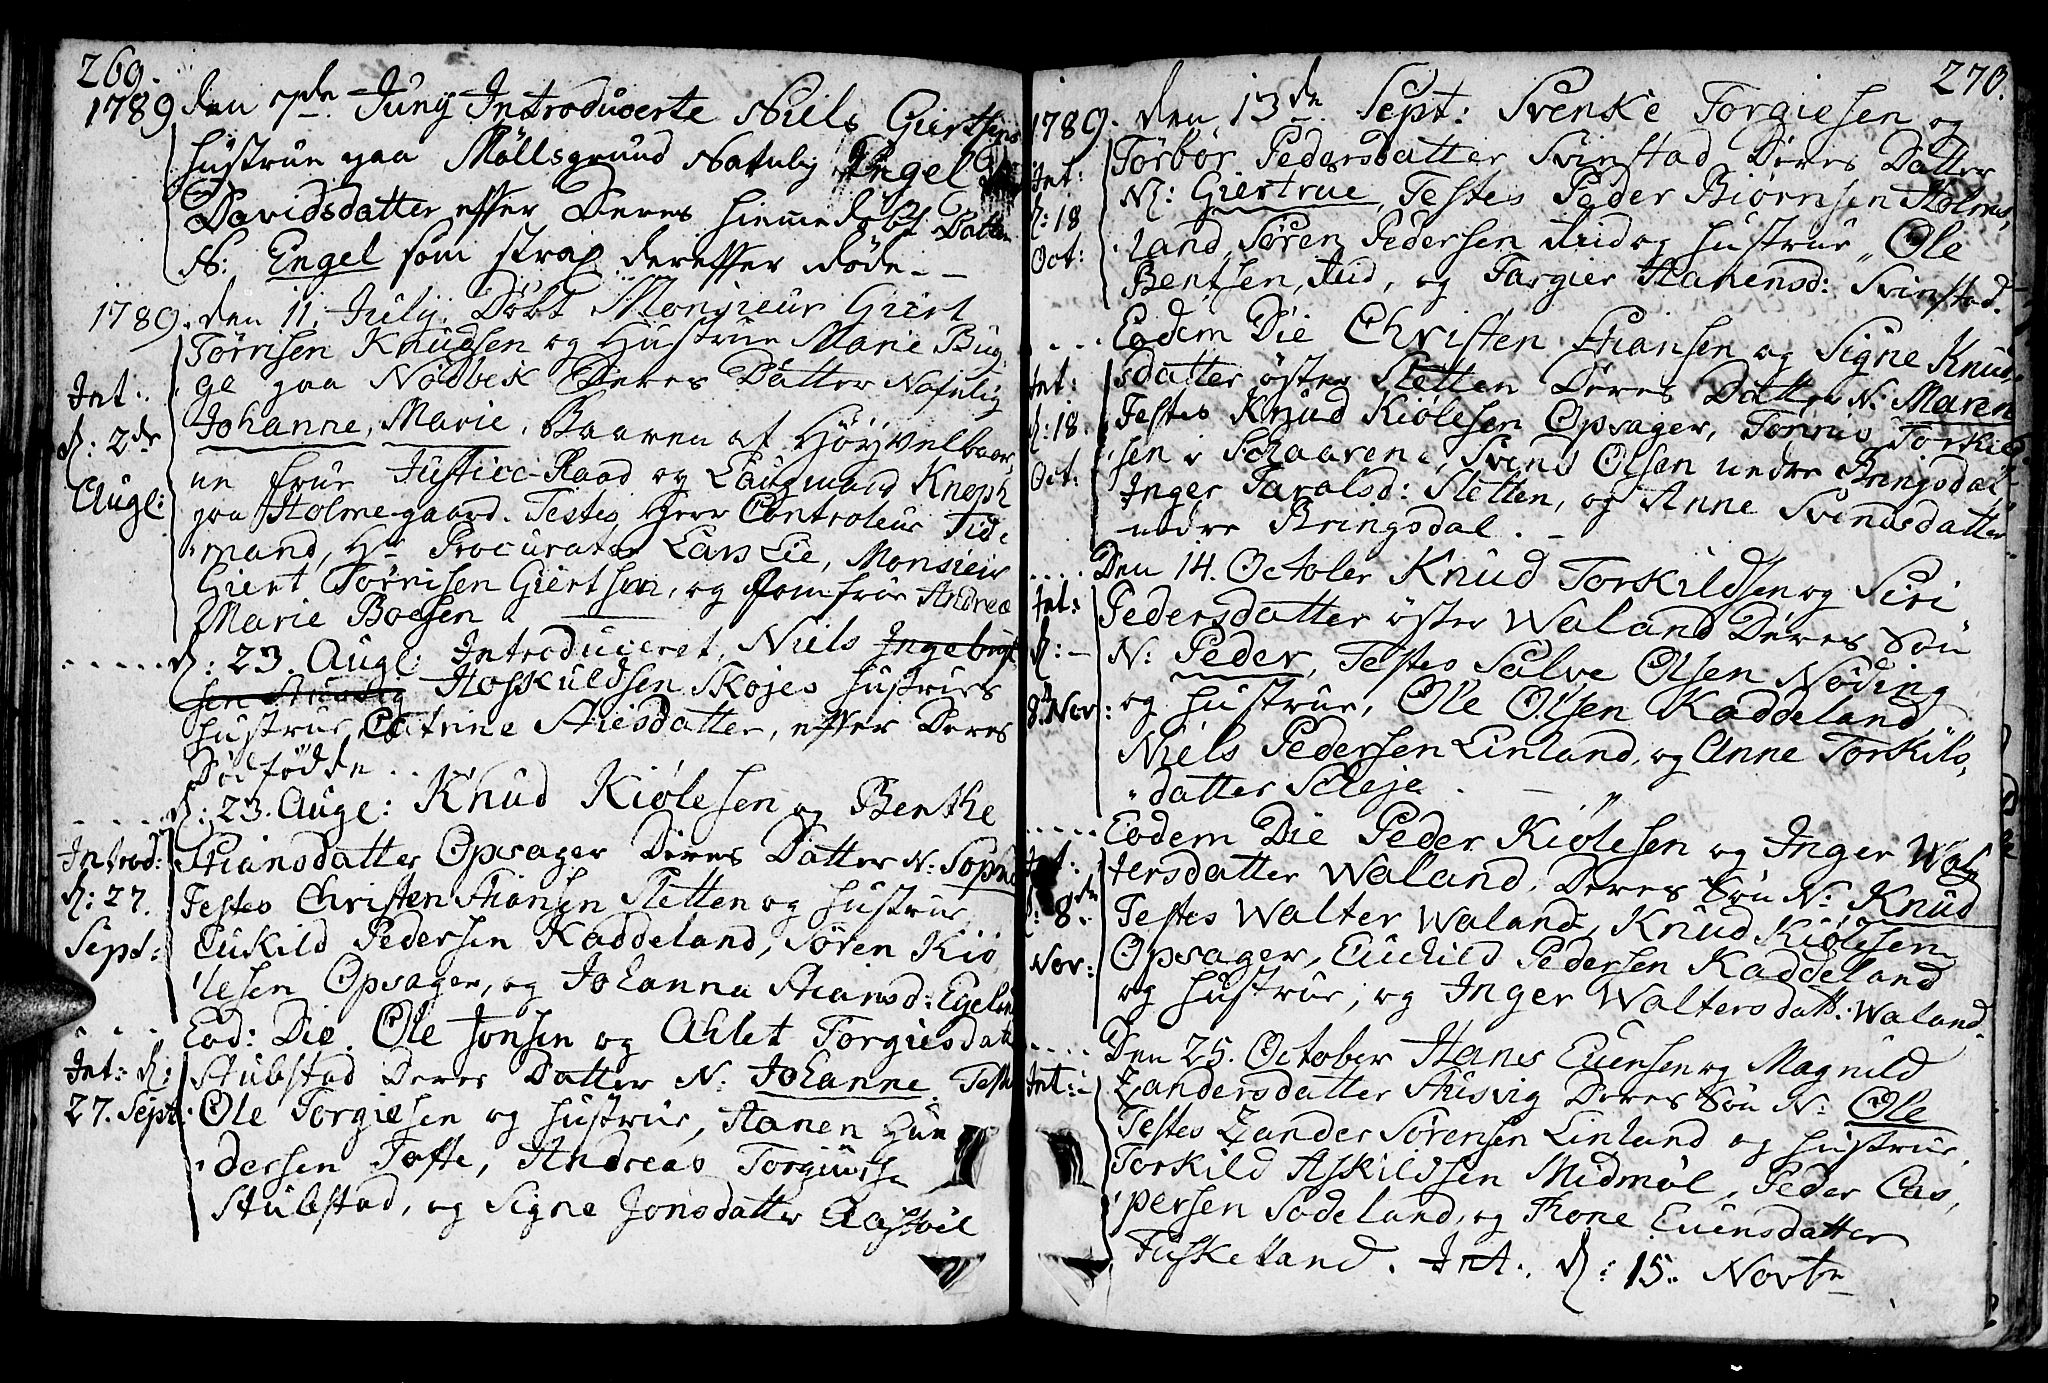 269.
1789 den 7de Juny Introducerte Niels Giertsens
hustrue paa Möllsgrund Nafnlig Engel
Davidsdatter effter Deres hiemmedöbt Datter
N: Engel som strax dereffter döde. —
1789. den 11. July. Döbt Monsieur Giert
Törrisen Knudsen og Hustrue Marie Bug,
ge paa Nodbek Deres Datter Nafnlig
Int:
Johanne, Marie. Baaren af Höyvelbaar,
d: 2de
ne frue Justice-Raad og Laugmand Knoph
Augt:
paa Holme-gaard. Testes Herr Controleur Tide
mand, Hr Procurator Lars Lie, Monsieur
Giert Törrisen Giertsen, og Jomfrue Andrea
Marie Boesen. —
d: 23. Augt: Introduceret. Niels Ingebrigt
sen Hoskuldsen Skojes hustrues
hustrue Catrine Stiesdatter, effter Deres
Dödfödde..
d: 23. Augt: Knud Kiölesen og Benthe
Introd:
Stiansdatter Opsager Deres Datter N: Sophia
d: 27.
Testes Christen Stiansen Sletten og hustrue,
Sept:
Eukild Pedersen Kaddeland, Sören Kiö,
lesen Opsager, og Johanna Stiansd: Egeland
Eod: Die. Ole Jonsen og Ahlet Torgiesdatt
Int: d:
Stubstad Deres Datter N: Johanne. Testes
27. Sept:
Ole Torgiesen og hustrue, Hanen Gun
dersen Tofte, Andreas Torgiusen
Stubstad, og Signe Jonsdatter Aastveil
270.
1789. den 13de Sept: Svenke Torgiesen og
Int:
Torbör Pedersdatter Svinstad Deres Datter
d: 18
N: Giertrue, Testes Peder Biörnsen Holms,
Oct:
land, Sören Pedersen Aud og hustrue, Ole
Bentsen, Aud, og Targier Hanensd: Svinstad.
Eodem Die Christen Stiansen og Signe Knud,
Int:
sdatter öster Sletten Deres Datter N: Maren
d: 18.
Testes Knud Kiölesen Opsager, Tönnes Torkild
Oct:
sen i Schaaren, Svend Olsen nedre Bringsdal
Inger Taralsd: Sletten, og Anne Svendsdatter
nedre Bringsdal. —
Den 14. October Knud Torkildsen og Siri
Int:
Pedersdatter öster Waland Deres Sön
d: —
N: Peder, Testes Salve Olsen Nöding
8. Nov:
og hustrue, Ole Olsen Kaddeland
Niels Pedersen Linland, og Anne Torkils,
datter Scleje.
Eodem Die Peder Kiölesen og Inger Wal,
Int:
tersdatter Waland, Deres Sön N: Knud
d: 8de
Testes Walter Waland, Knud Kiölesen
Nov:
Opsager, Euchild Pedersen Kaddeland
og hustrue, og Inger Waltersdatt: Waland.
Den 25. October Hans Evensen og Magnild
Int:
Zandersdatter Stusvig Deres Sön N: Ole
Testes Zander Sörensen Linland og hustrue,
Torkild Askildsen Midmöl, Peder Cas,
persen Sodeland, og Thone Evensdatter
Tuskeland. Int. d: 15. Novbr